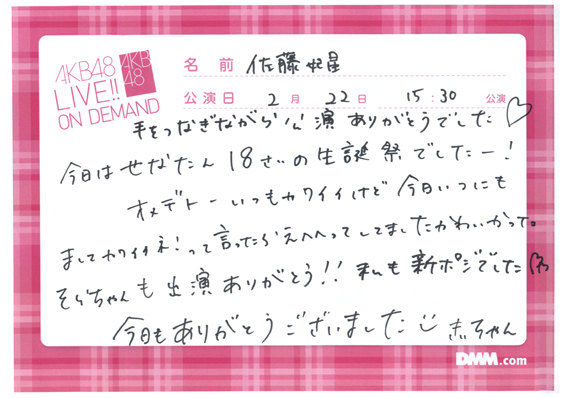 AKB48
LIVE!!
ON DEMAND
AKB
48
名前 佐藤妃星
公演日 2月22日 15:30 公演
手をつなぎながら公演ありがとうでした♡
今日はせなたん18さいの生誕祭でしたー!
オメデトーいつもカワイイけど今日いつにも
ましてカワイイネ!って言ったらえへへってしてましたかわいかった。
そらちゃんも出演ありがとう!!私も新ポジでした
今日もありがとうございました きぃちゃん
DMM.com